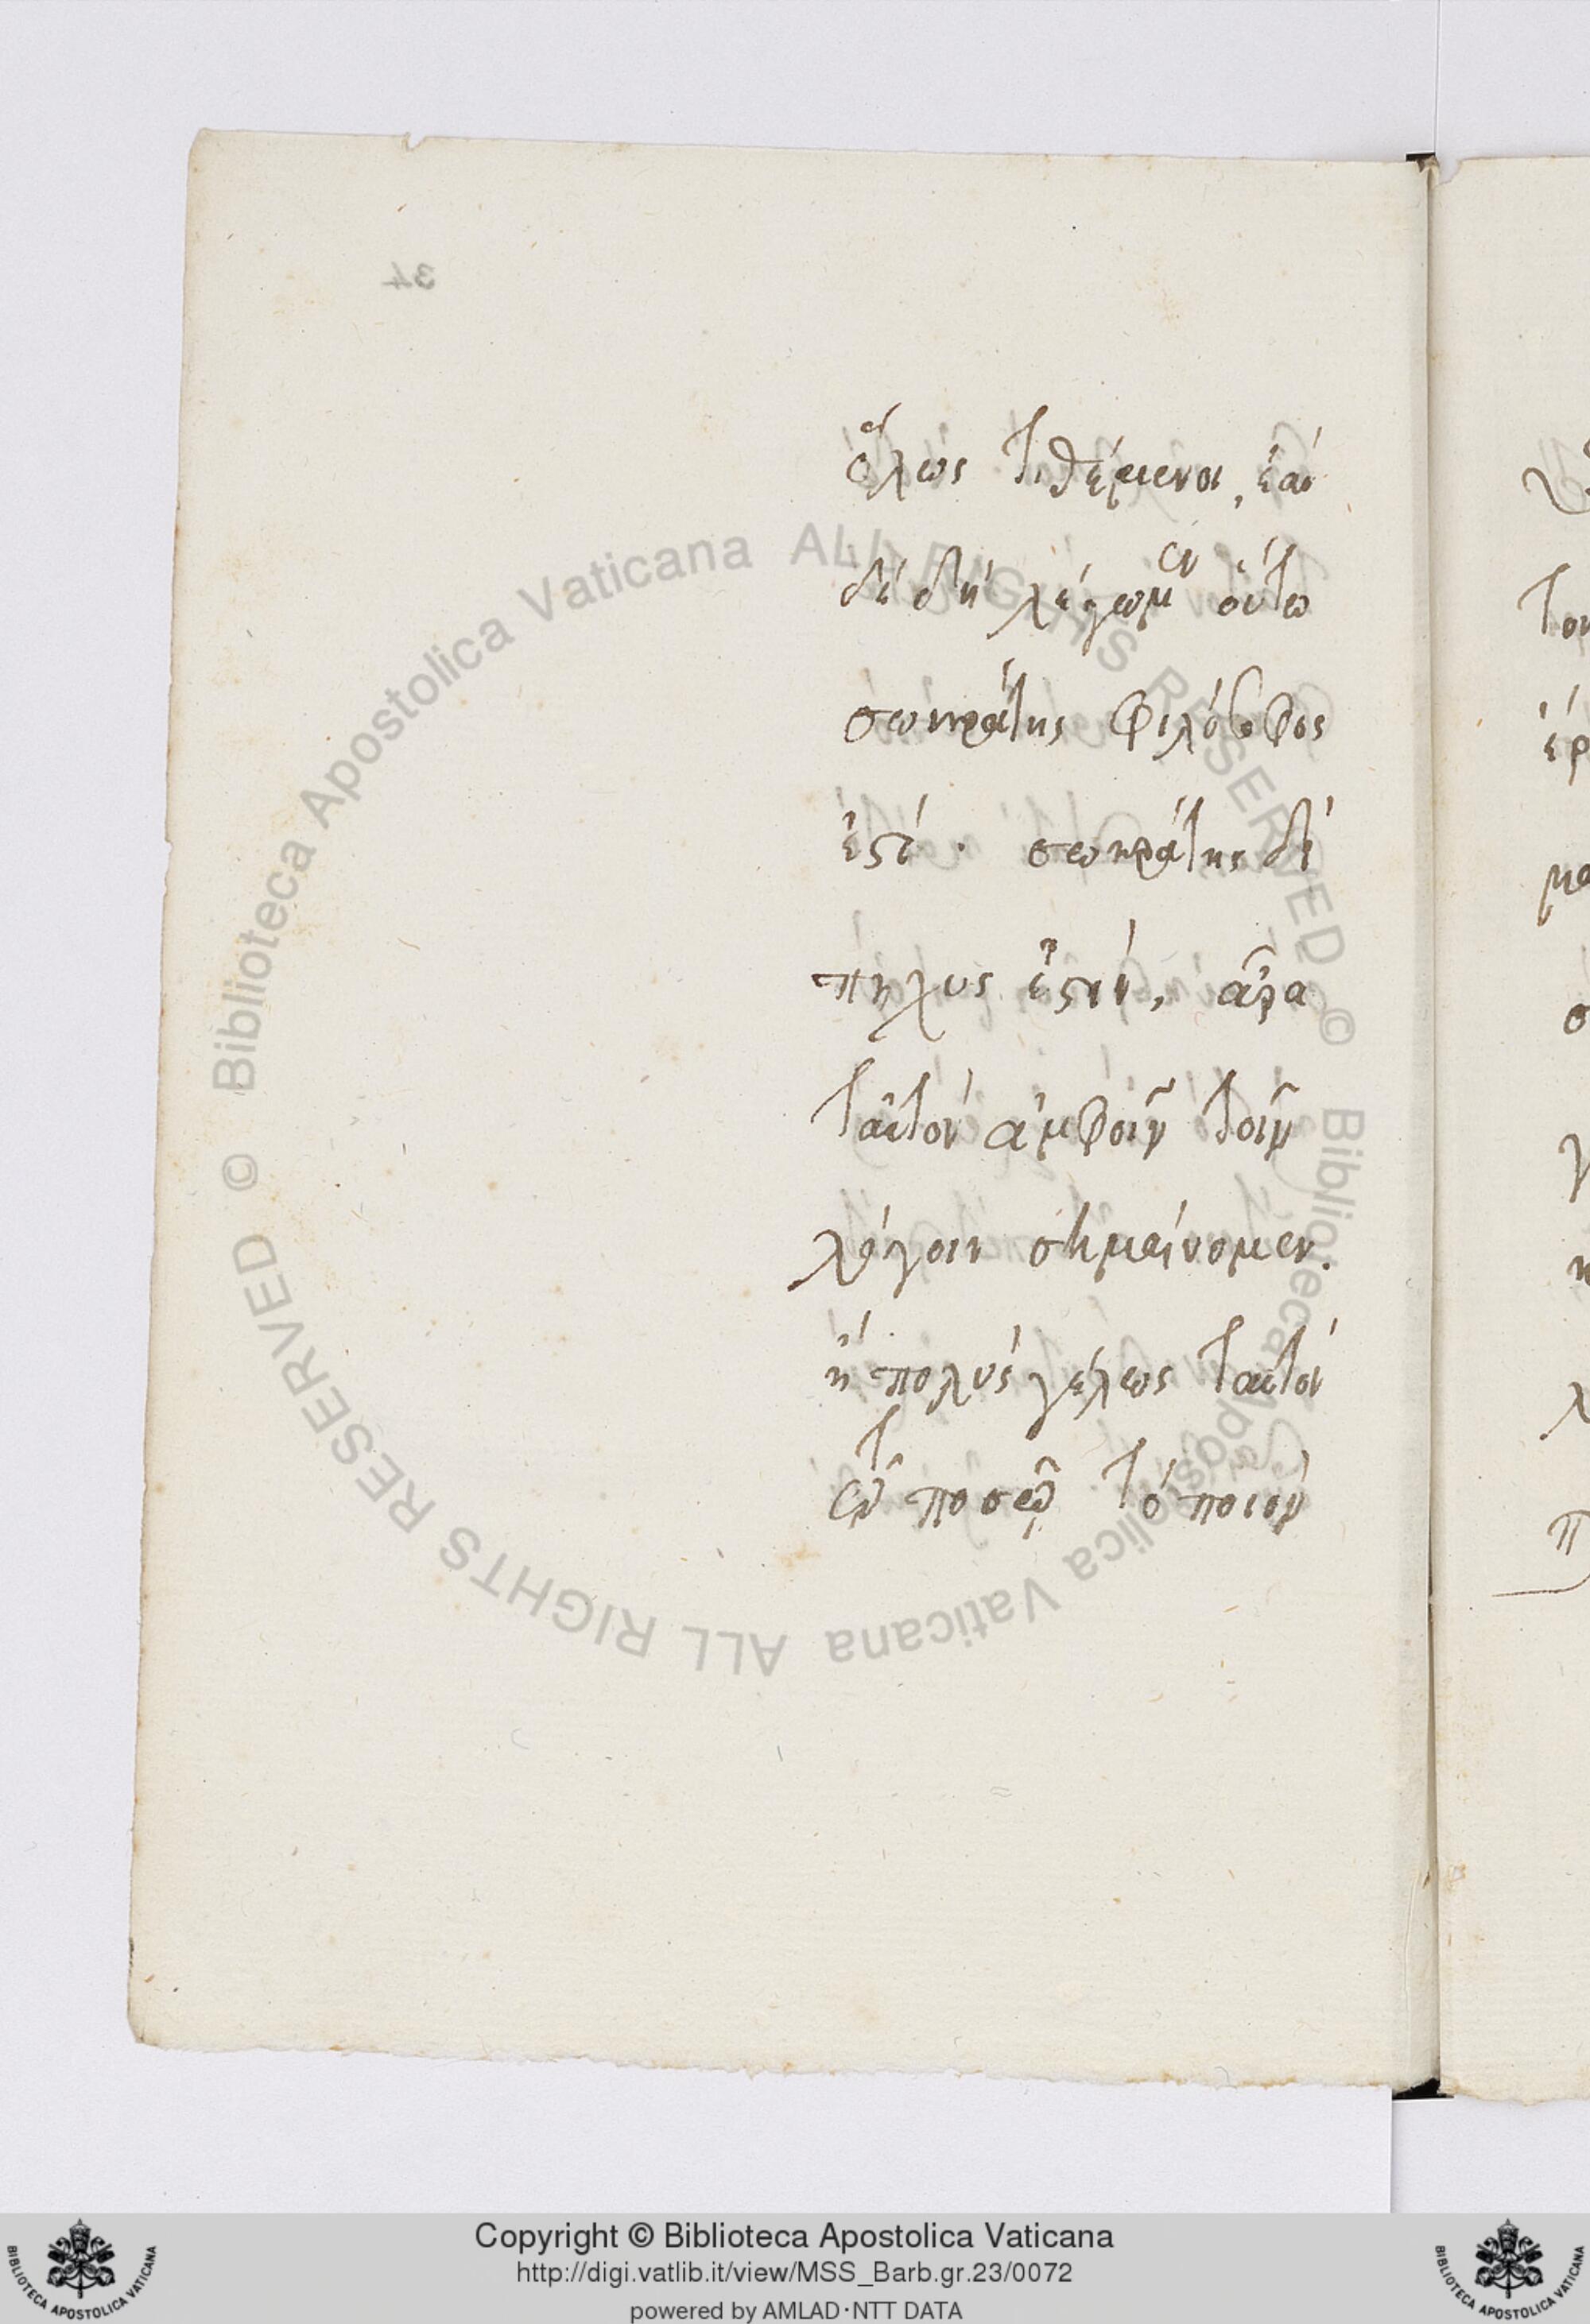 34
ὅλως τιθέμενοι, ἐὰν
δὲ δὴ λέγωμεν οὕτω
σωκράτης φιλόσοφος
ἐστί. σωκράτης δὲ
πηχυς ἐστὶν, ἆρα
ταὐτὸν ἀμφοῖν τοῖν
λόγοιν σημαίνομεν.
ἢ πολὺς γέλως ταὐτὸν
τῶ ποσῶ τὸ ποιὸν
© Biblioteca Apostolica Vaticana ALL RIGHTS RESERVED
© Biblioteca Apostolica Vaticana ALL RIGHTS RESERVED
Copyright © Biblioteca Apostolica Vaticana
http://digi.vatlib.it/view/MSS_Barb.gr.23/0072
powered by AMLAD·NTT DATA
BIBLIOTECA APOSTOLICA VATICANA
BIBLIOTECA APOSTOLICA VATICANA